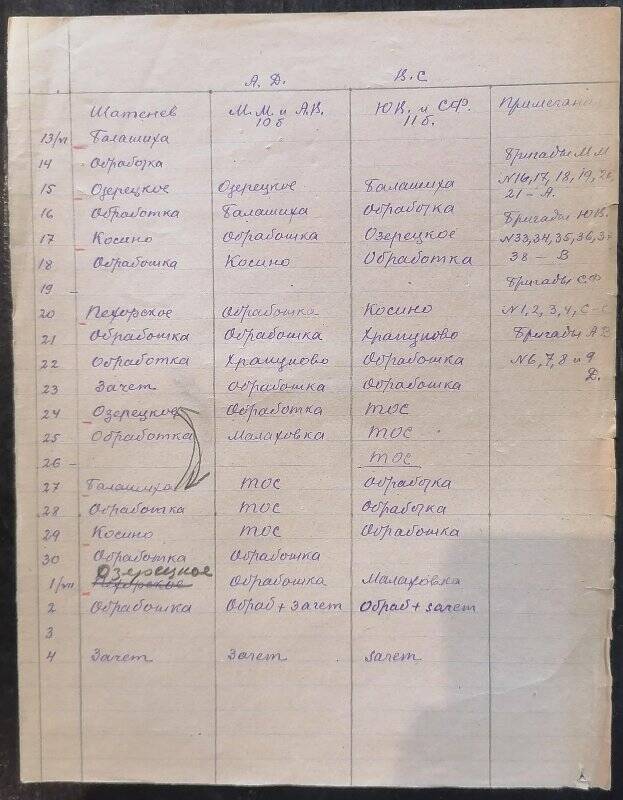 А. Д. В. С
Шатенев М.М и А.В. ЮВ. и СФ. Примечан
10б 11б.
13/VI Балашиха
14 Обработка Бригады ММ
15 Озерецкое Озерецкое Балашиха N16, 17, 18, 19, 20,
16 Обработка Балашиха Обработка 21 - А.
17 Косино Обработка Озерецкое Бригады ЮВ.
18 Обработка Косино Обработка N33, 34, 35, 36, 37
19 - 38 - В
20 Пехорское Обработка Косино Бригады СФ
21 Обработка Обработка Храпуново N1, 2, 3, 4, С - С
22 Обработка Храпуново Обработка Бригады АВ
23 Зачет Обработка Обработка N6, 7, 8 и 9
24 Озерецкое Обработка ТОС Д.
25 Обработка Малаховка ТОС
26 - ТОС
27 Балашиха ТОС Обработка
28 Обработка ТОС Обработка
29 Косино ТОС Обработка
30 Обработка Обработка
Озерецкое
1/VII Пехорское Обработка Малаховка
2 Обработка Обраб + Зачет Обраб + зачет
3
4 Зачет Зачет зачет